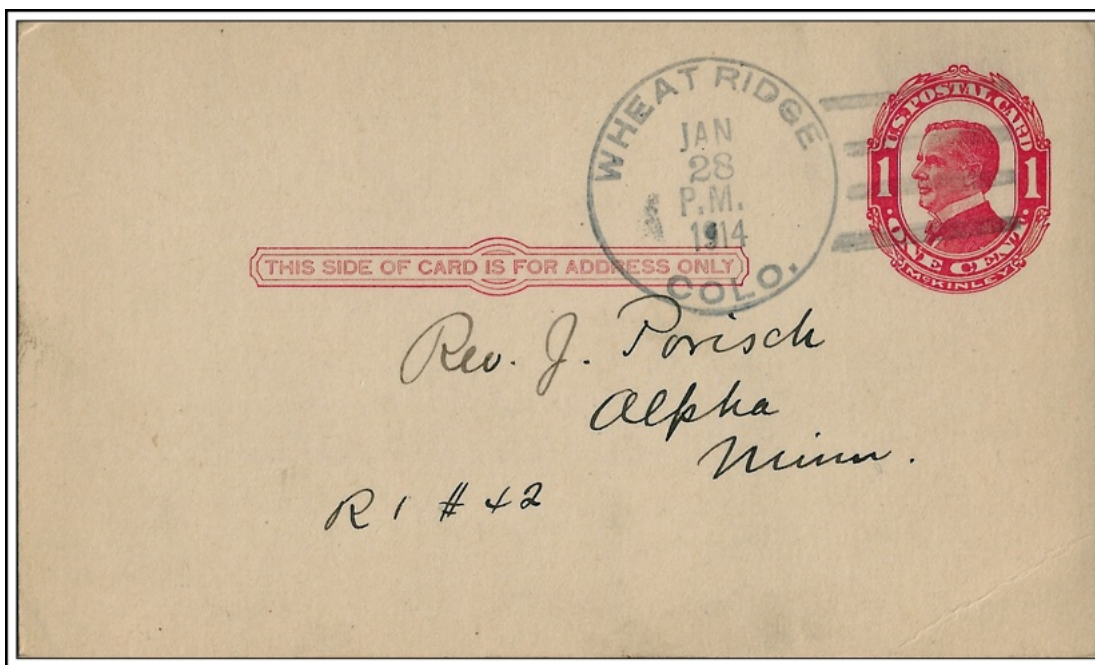 WHEAT RIDGE
JAN
28
P.M.
1914
COLO.
U.S. POSTAL CARD
1 1
ONE CENT
McKINLEY
THIS SIDE OF CARD IS FOR ADDRESS ONLY
Rev. J. Porisch
Alpha
Minn.
R 1 # 42